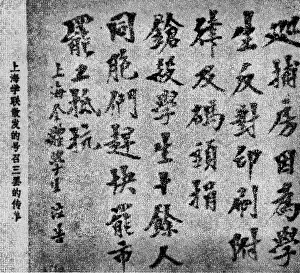 巡捕房因為學
生反對印刷附
律及碼頭捐
鎗殺學生十餘人
同胞們趕快罷市
罷工抵抗
上海全體學生泣告
上海学联散发的号召三罢的传单